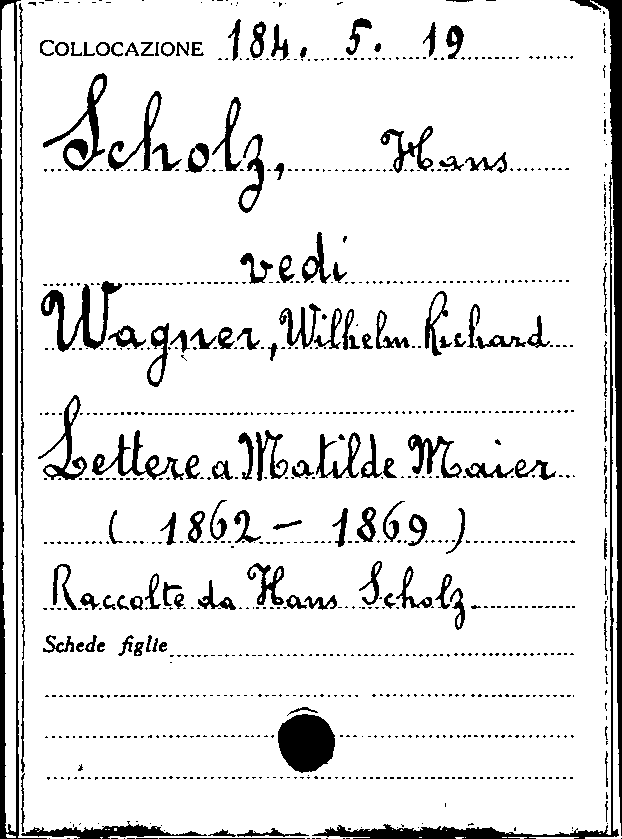 COLLOCAZIONE 184. 5. 19
Scholz, Hans
vedi
Wagner, Wilhelm Richard
Lettere a Matilde Maier
( 1862 - 1869 )
Raccolte da Hans Scholz.
Schede figlie